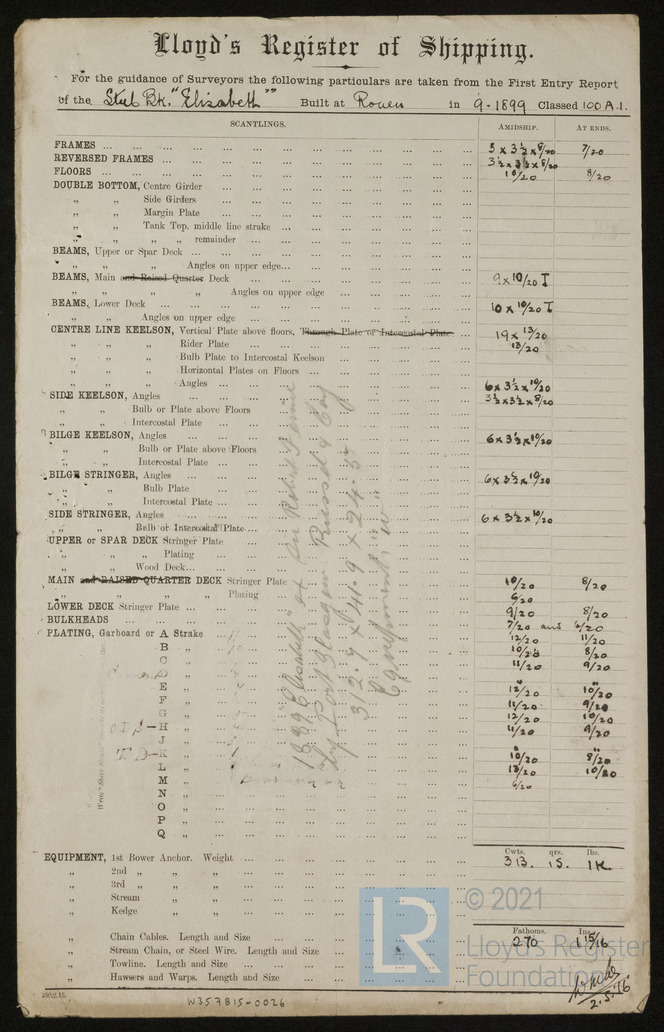 Lloyd's Register of Shipping.
For the guidance of Surveyors the following particulars are taken from the First Entry Report
of the Stul Bk. "Elisabeth" Built at Rouen in 9-1899 Classed 100 A.1.
SCANTLINGS. AMIDSHIP. AT ENDS.
FRAMES ... 5 x 3½ x 8/20 7/20
REVERSED FRAMES ... 3½ x 3½ x 8/20
FLOORS ... 10/20 8/20
DOUBLE BOTTOM, Centre Girder ...
„ „ Side Girders ...
„ „ Margin Plate ...
„ „ Tank Top, middle line strake ...
„ „ „ „ remainder ...
BEAMS, Upper or Spar Deck ...
„ „ „ Angles on upper edge...
BEAMS, Main and Raised Quarter Deck ... 9 x 10/20 I
„ „ „ Angles on upper edge ...
BEAMS, Lower Deck ... 10 x 10/20 I
„ „ Angles on upper edge ...
CENTRE LINE KEELSON, Vertical Plate above floors, Through Plate or Intercostal Plate ... 19 x 13/20
„ „ „ Rider Plate ... 13/20
„ „ „ Bulb Plate to Intercostal Keelson ...
„ „ „ Horizontal Plates on Floors ...
„ „ „ Angles ... 6 x 3½ x 10/20
SIDE KEELSON, Angles ... 3½ x 3½ x 8/20
„ „ Bulb or Plate above Floors ...
„ „ Intercostal Plate ...
BILGE KEELSON, Angles ... 6 x 3½ x 10/20
„ „ Bulb or Plate above Floors ...
„ „ Intercostal Plate ...
BILGE STRINGER, Angles ... 6 x 3½ x 10/20
„ „ Bulb Plate ...
„ „ Intercostal Plate ...
SIDE STRINGER, Angles ... 6 x 3½ x 10/20
„ „ Bulb or Intercostal Plate ...
UPPER or SPAR DECK Stringer Plate ...
„ „ „ Plating ...
„ „ Wood Deck...
MAIN and RAISED QUARTER DECK Stringer Plate 10/20 8/20
„ „ „ „ Plating 6/20
LOWER DECK Stringer Plate ... 9/20 8/20
BULKHEADS ... 7/20 and 6/20
PLATING, Garboard or A Strake ... 12/20 11/20
B „ 10/20 8/20
C „ 11/20 9/20
D „
E „ 12/20 10/20
F „ 11/20 9/20
G „ 12/20 10/20
H „ 11/20 9/20
J „
K „ 10/20 8/20
L „ 13/20 10/20
M „ 6/20
N „
O „
P „
Q „
1889 Elisabeth
Port Glasgow Russell & Coy
312.7 x 41.9 x 24.5
Equipment "W"
Cwts. qrs. lbs.
EQUIPMENT, 1st Bower Anchor. Weight ...
„ 2nd „ „ „ ...
„ 3rd „ „ „ ...
„ Stream „ „ ...
„ Kedge „ „ ...
Fathoms. Ins.
„ Chain Cables. Length and Size ... 270 1 15/16
„ Stream Chain, or Steel Wire. Length and Size ...
„ Towline. Length and Size ...
„ Hawsers and Warps. Length and Size ...
2.5.16
W357815-0026
LR
© 2021
Lloyd's Register
Foundation